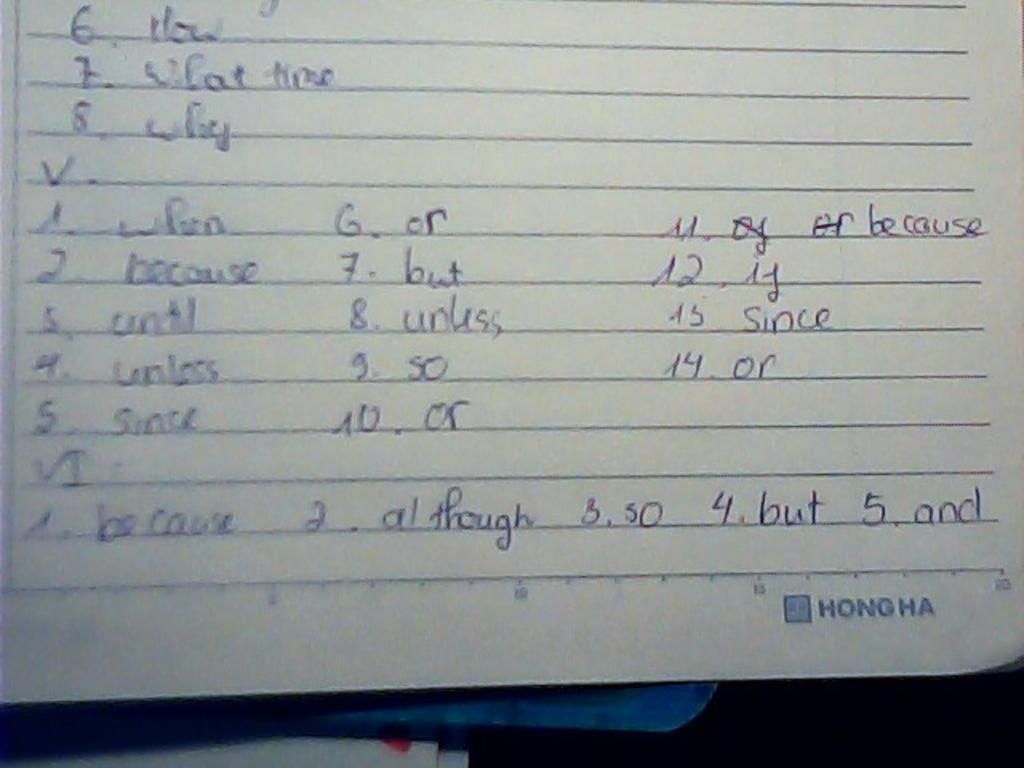 6. How
7. What time
8. why
V.
1. when 6. or 11. because
2. because 7. but 12. if
3. until 8. unless 13 since
4. unless 9. so 14. or
5. since 10. or
VI.
1. because 2. although 3. so 4. but 5. and
5 10 15 20
HONG HA